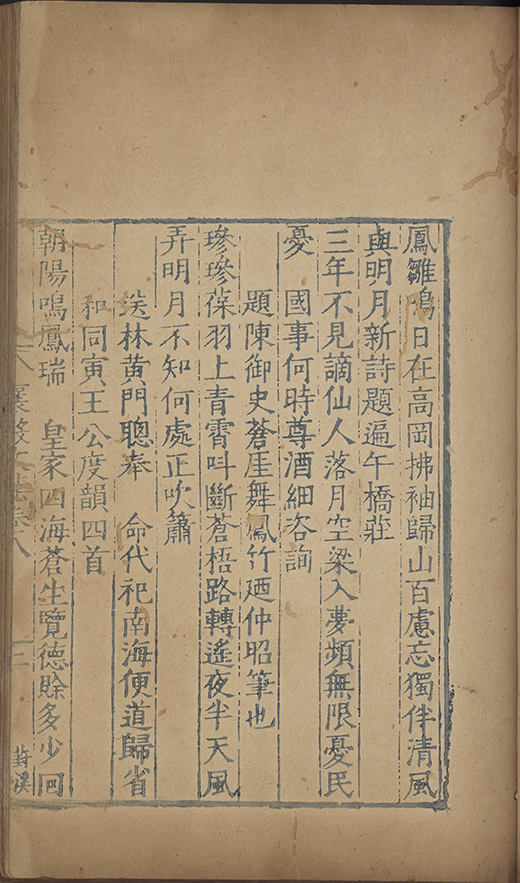 鳳雛鳴日在高岡拂袖歸山百慮忘獨伴清風
與明月新詩題遍午橋莊
三年不見謫仙人落月空梁入夢頻無限憂民
憂 國事何時尊酒細咨詢
題陳御史蒼崖舞鳳竹廼仲昭筆也
毿毿葆羽上青霄叫斷蒼梧路轉遙夜半天風
弄明月不知何處正吹簫
送林黃門聰奉 命代祀南海便道歸省
和同寅王公度韻四首
朝陽鳴鳳瑞 皇家四海蒼生覽德賒多少回
襄毅文集卷八
三